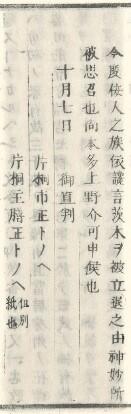 今度佞人之族依讒言茨木ヲ被立退之由神妙所
被思召也尚本多上野介可申候也
十月七日　御直判
片桐市正トノヘ
片桐主膳正トノヘ　但別
紙也